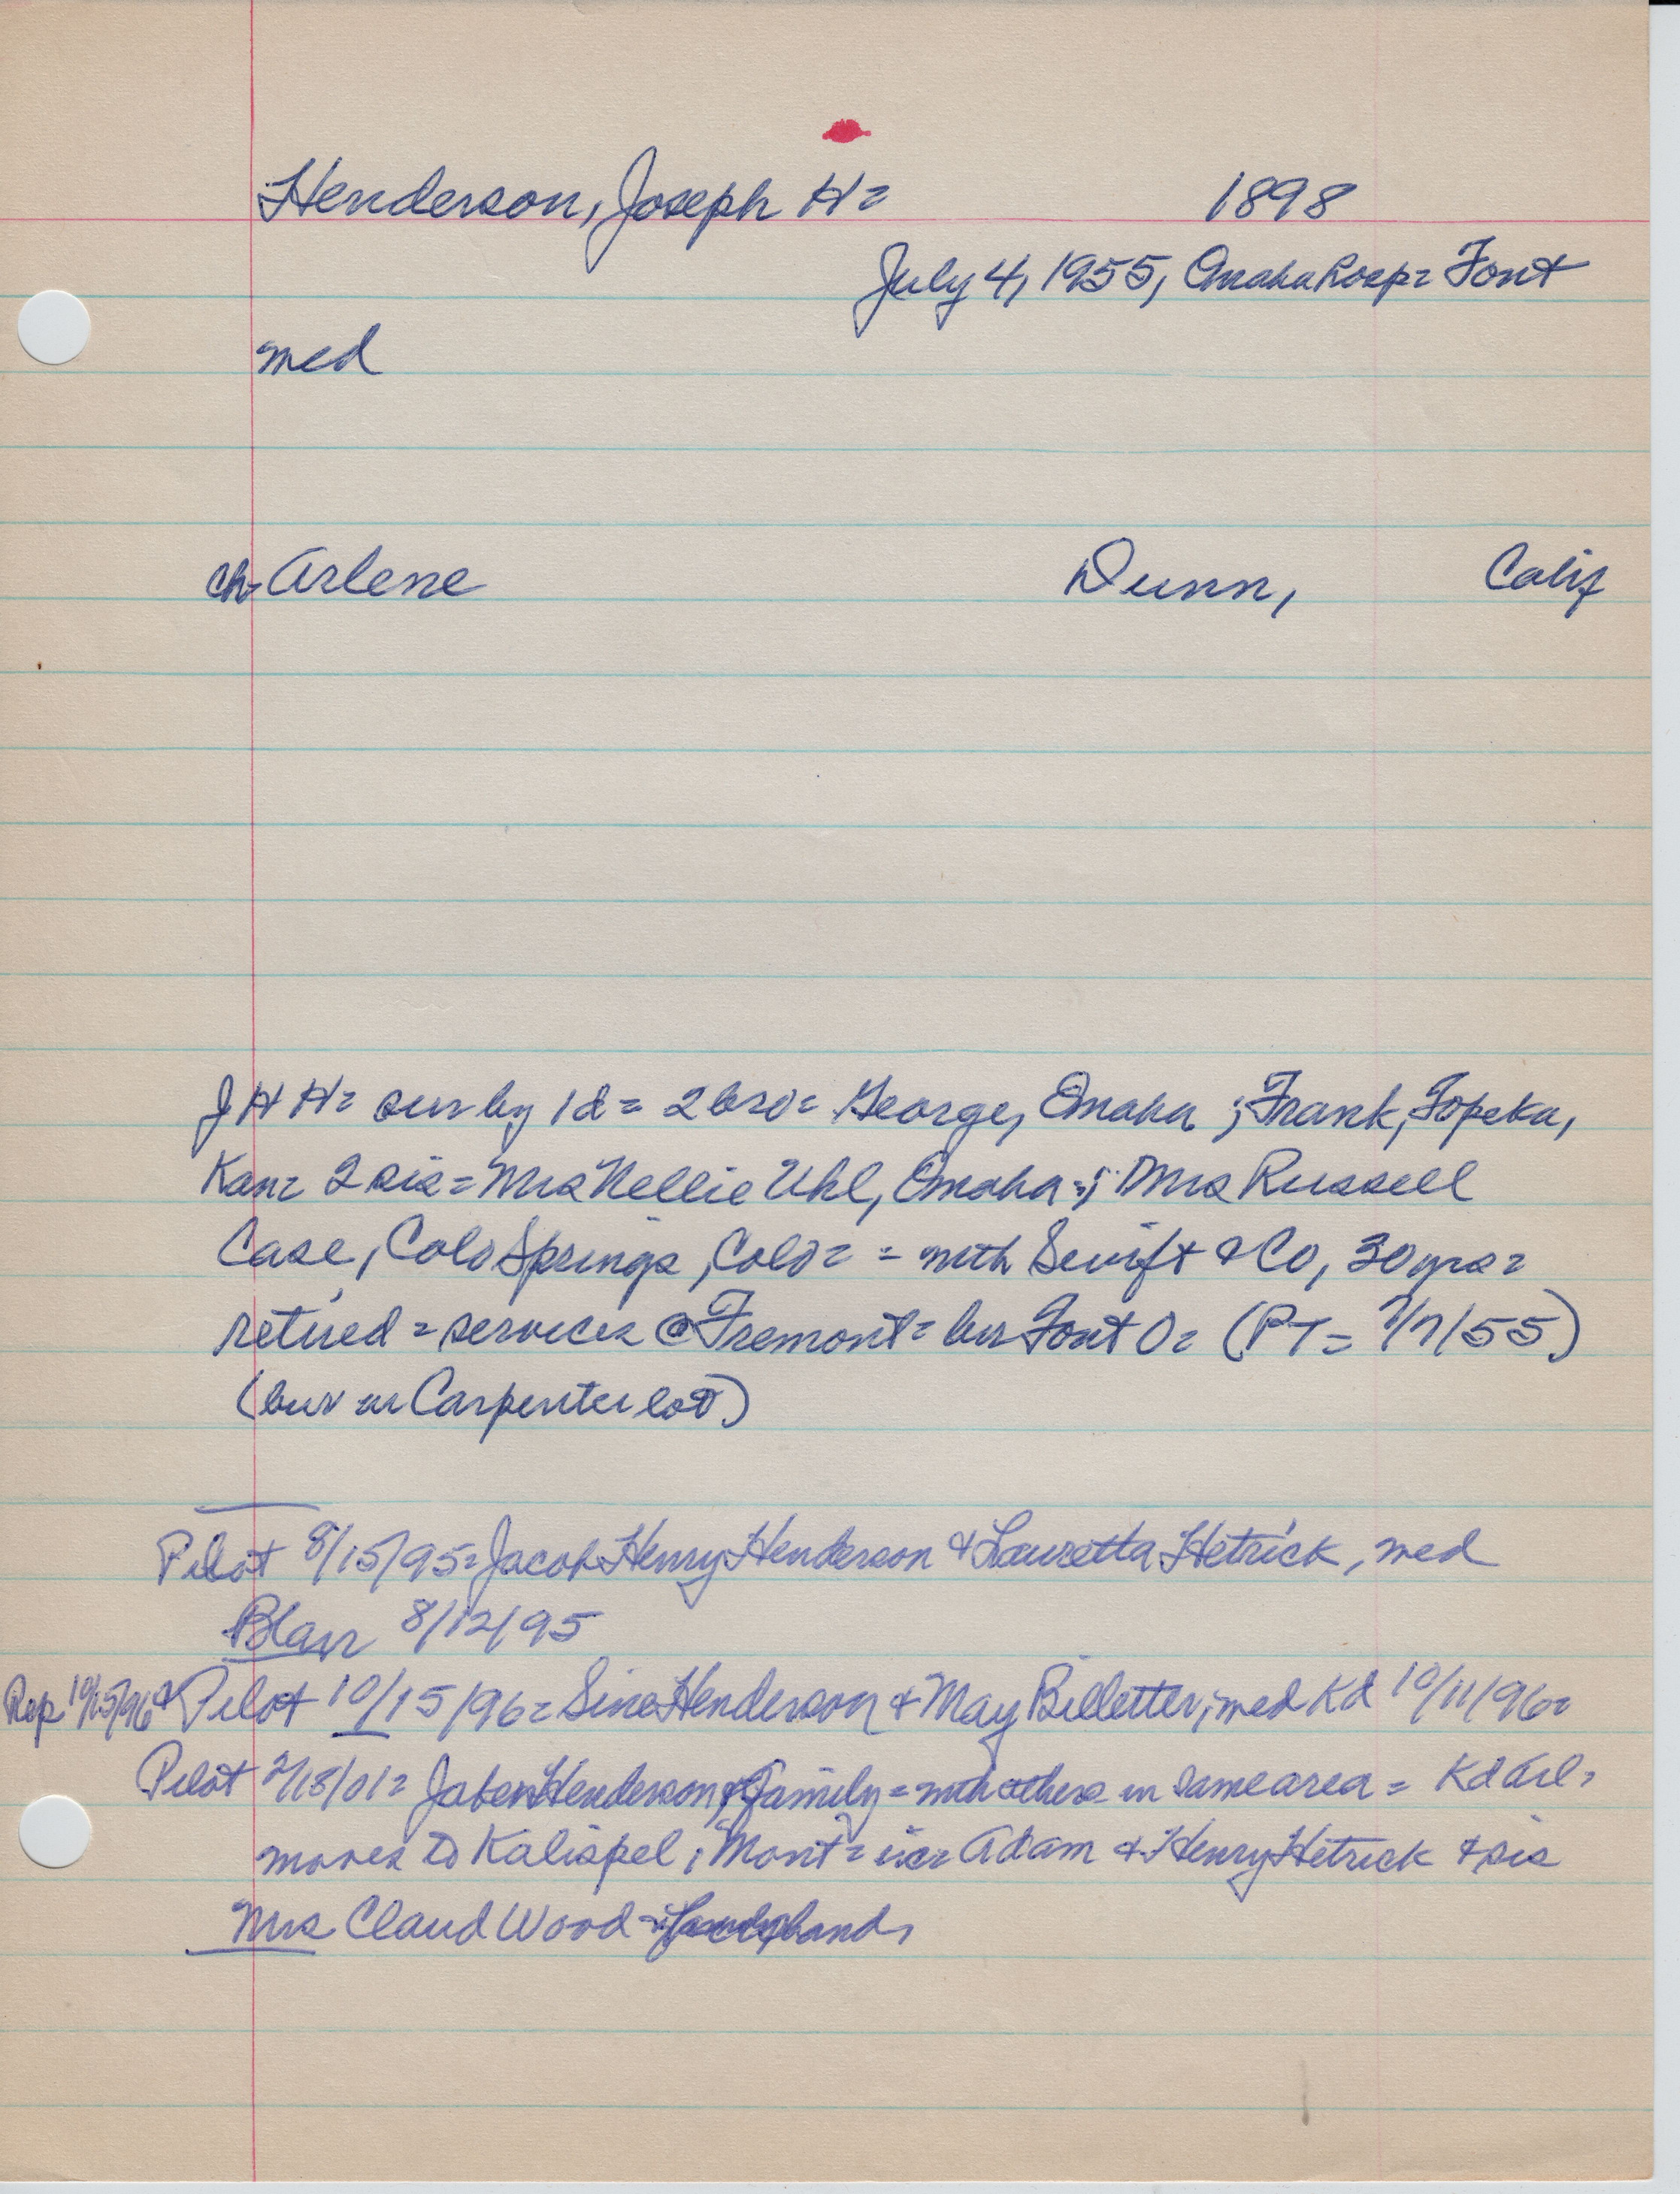 Henderson, Joseph H= 1898
July 4, 1955, Omaha hosp= Font
med
ch= Arlene Dunn, Calif
J H H= sur by 1d= 2 bro= George, Omaha ; Frank, Topeka,
Kan= 2 sis= Mrs Nellie Uhl, Omaha ; Mrs Russell
Case, Colo Springs, Colo= = with Swift & Co, 30 yrs=
retired = services @ Fremont= bur Font O= (PT= 7/7/55)
(bur in Carpenter lot)
Pilot 8/15/95= Jacob Henry Henderson & Lauretta Hetrick, med
Blair 8/12/95
Rep 10/15/96 & Pilot 10/15/96= Sine Henderson & May Billetter, med Kd 10/11/96=
Pilot 2/15/01= Henderson & family = with others in same area = Kd Arl,
moves to Kalispel, Mont= Adam & Henry Hetrick & sis
Mrs Claud Wood